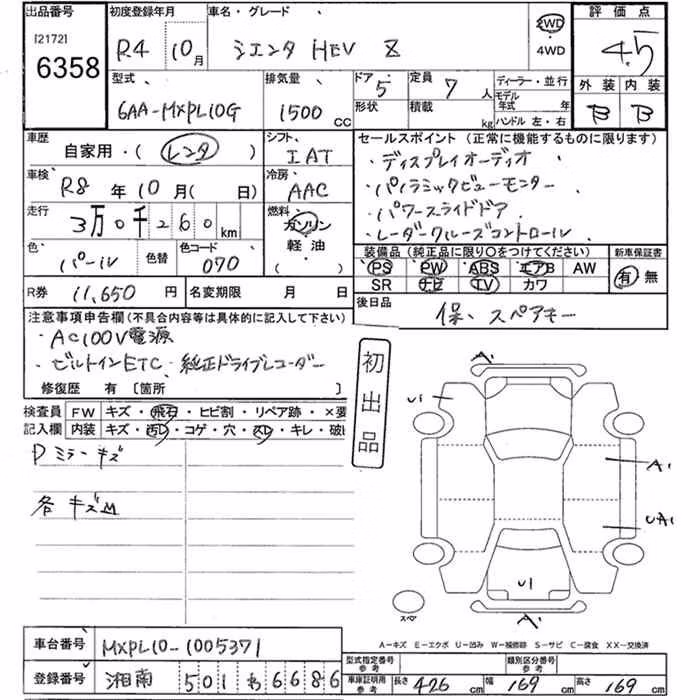 出品番号
[2172]
6358
初度登録年月
R4 10月
車名・グレード
シエンタ HEV Z
2WD
・
4WD
評価点
4.5
型式
6AA-MXPL10G
排気量
1500 CC
ドア 5
定員 7 人
形状
積載 kg
ディーラー・並行
モデル年式 年
ハンドル 左・右
外装 内装
B B
車歴
自家用・(レンタ)
シフト
IAT
車検
R8 年 10 月 ( 日)
冷房
AAC
走行
3万0千260 km
燃料
ガソリン
軽油
( )
色
パール
色替
色コード
070
R券 11,650 円
名変期限 月 日
セールスポイント (正常に機能するものに限ります)
・ディスプレイオーディオ
・パノラミックビューモニター
・パワースライドドア
・レーダークルーズコントロール
装備品 (純正品に限り〇をつけてください)
新車保証書
PS PW ABS エアB AW
SR ナビ TV カワ
有 無
後日品
保、スペアキー
注意事項申告欄(不具合内容等は具体的に記入して下さい)
・AC100V電源
・ビルトインETC・純正ドライブレコーダー
修復歴 有 〔箇所 〕
初出品
検査員
記入欄
FW キズ・飛石・ヒビ割・リペア跡・×要
内装 キズ・汚レ・コゲ・穴・スレ・キレ・破
Dミラーキズ
各キズ
A1
U1
A1
UA1
U1
A1
スペア
A-キズ E-エクボ U-凹み W-補修跡 S-サビ C-腐食 XX-交換済
車台番号 MXPL10-1005371
登録番号 湘南 501 わ 6686
型式指定番号 参考
類別区分番号 参考
車庫証明用 参考
長さ 426 cm
幅 169 cm
高さ 169 cm